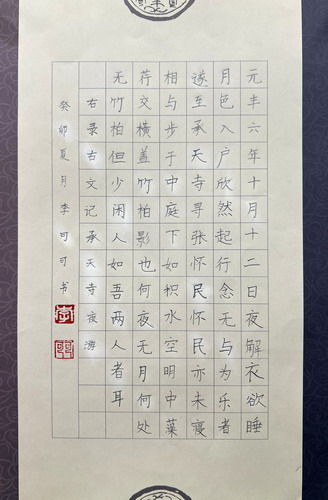 元丰六年十月十二日夜解衣欲睡
月色入户欣然起行念无与为乐者
遂至承天寺寻张怀民怀民亦未寝
相与步于中庭下如积水空明中藻
荇交横盖竹柏影也何夜无月何处
无竹柏但少闲人如吾两人者耳
右录古文记承天寺夜游
癸卯夏月李可可书
李
可可